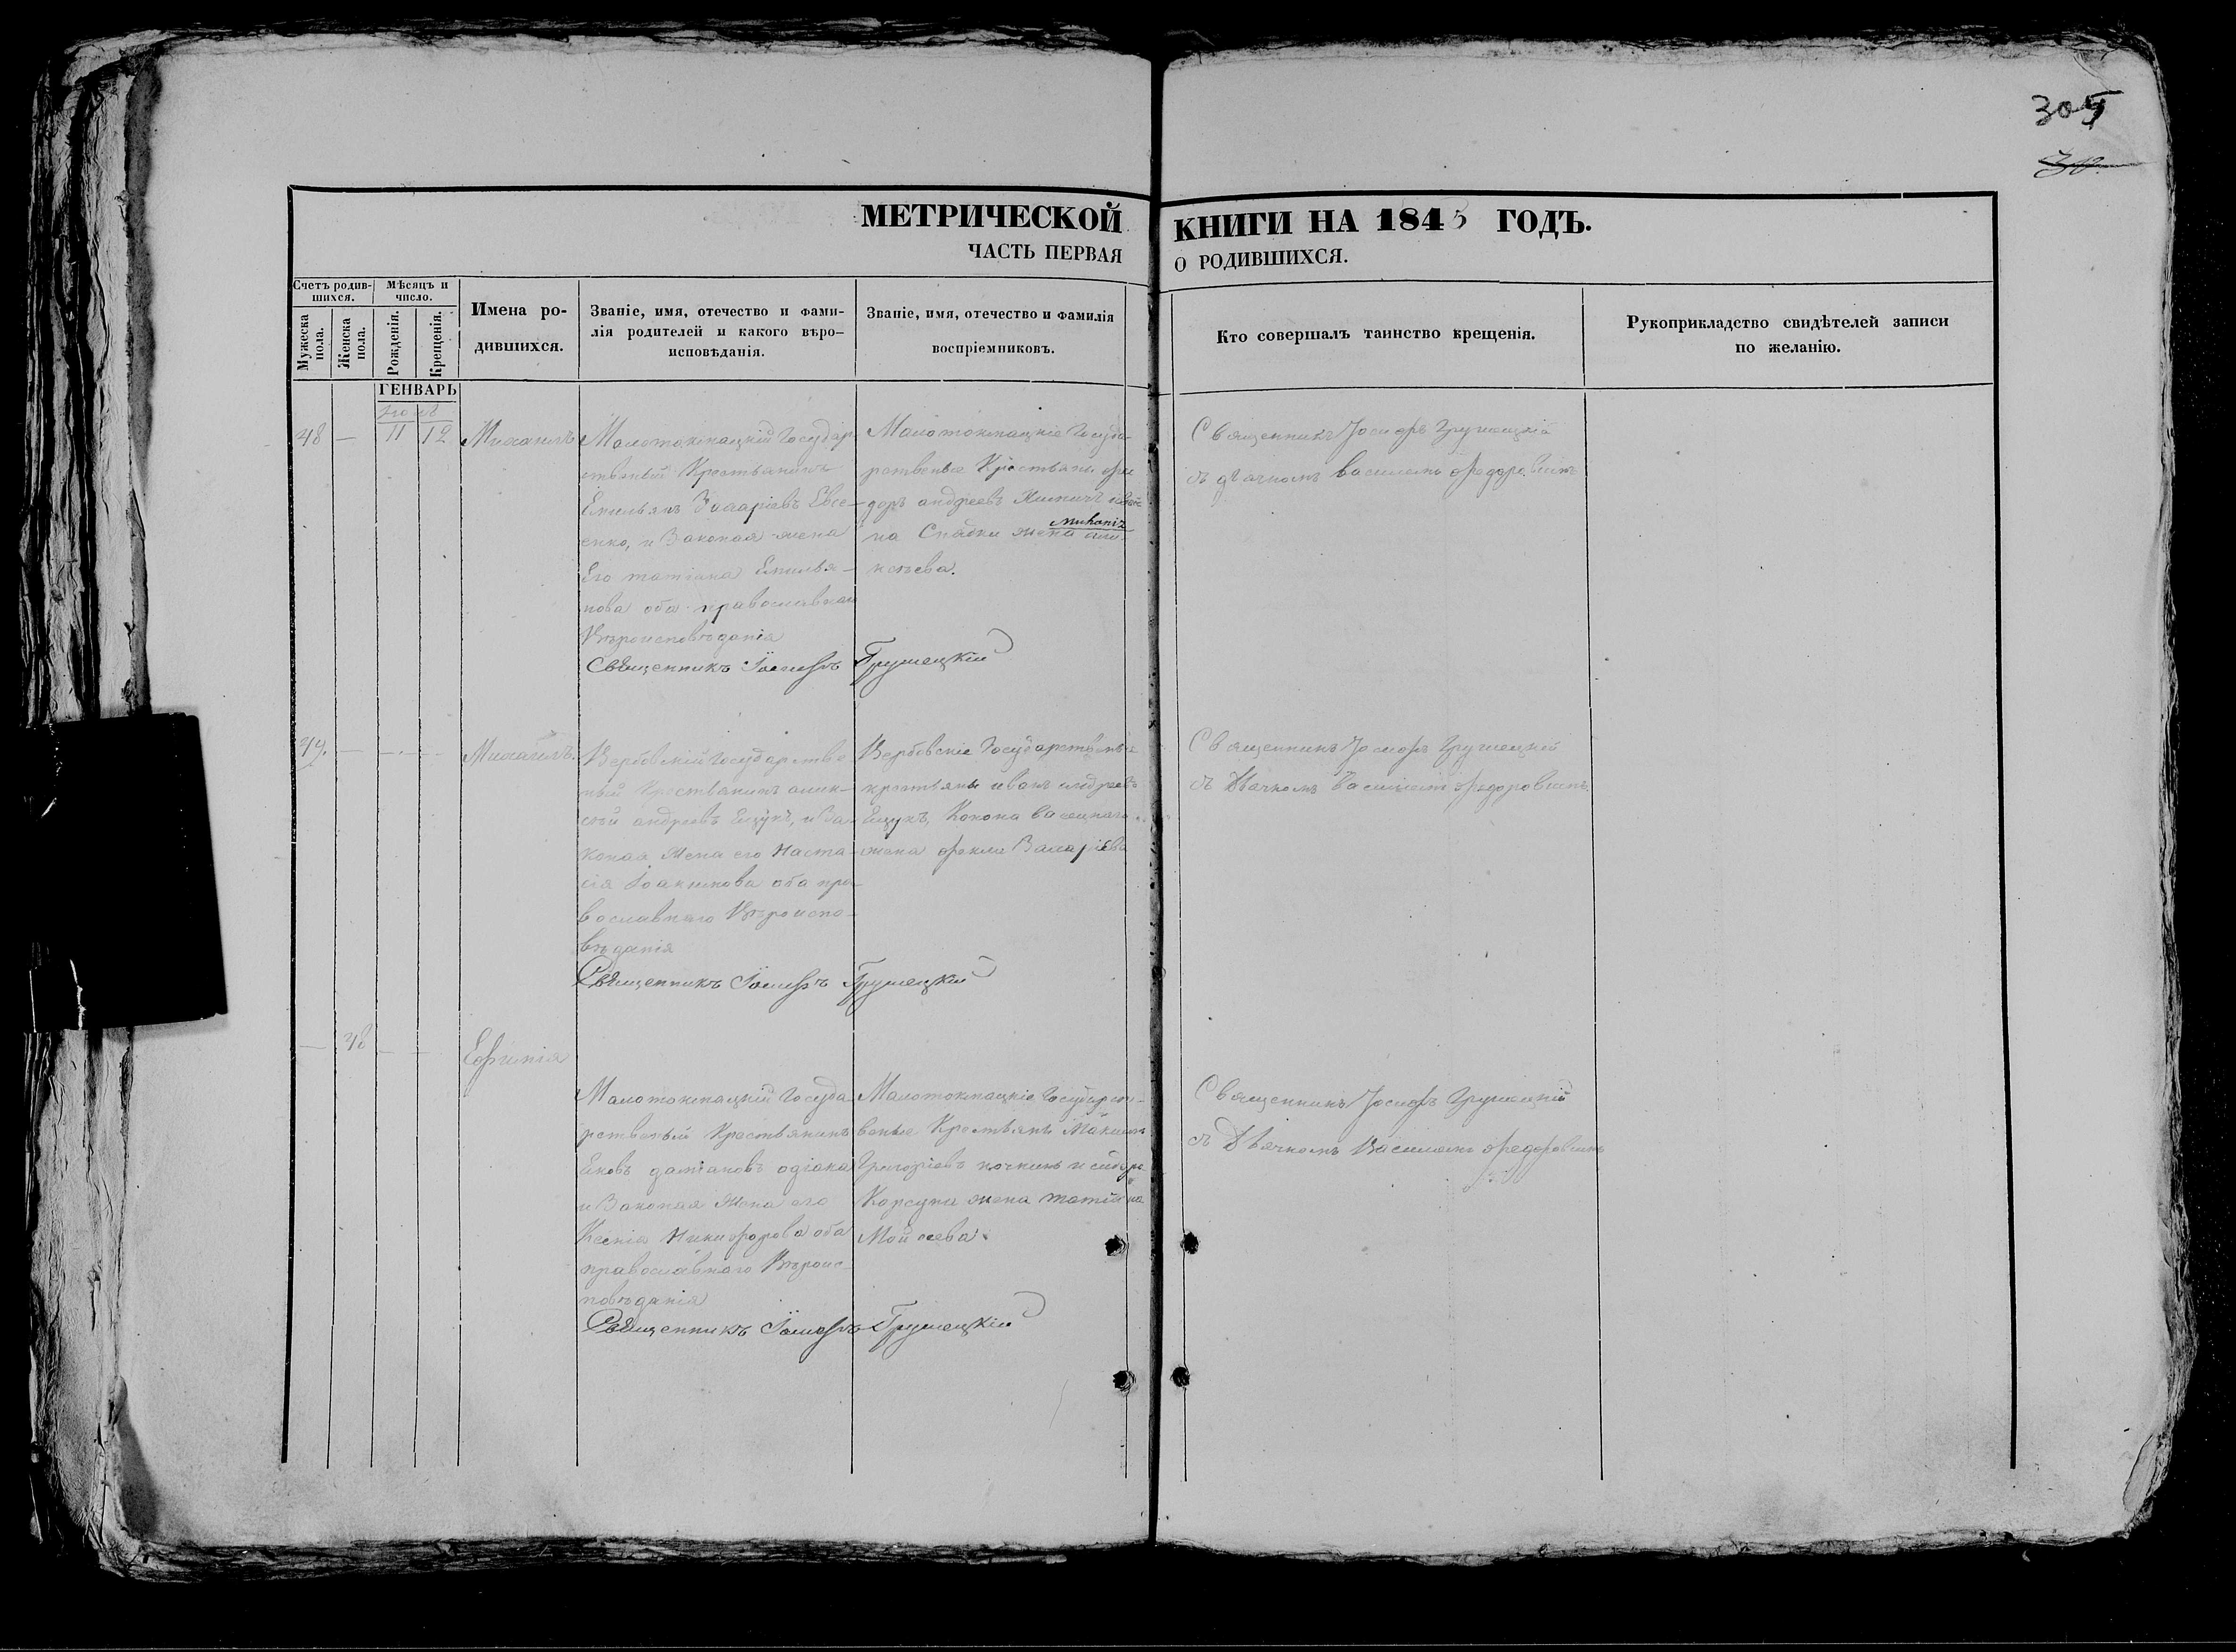 305
МЕТРИЧЕСКОЙ КНИГИ НА 1845 ГОДЪ.
ЧАСТЬ ПЕРВАЯ О РОДИВШИХСЯ.
Счетъ родив-
шихся.
Мужеска пола.
Женска пола.
Мѣсяцъ и
число.
Рожденія.
Крещенія.
Имена ро-
дившихся.
Званіе, имя, отечество и фами-
лія родителей и какого вѣро-
исповѣданія.
Званіе, имя, отечество и фамилія
воспріемниковъ.
Кто совершалъ таинство крещенія.
Рукоприкладство свидѣтелей записи
по желанію.
ГЕНВАРЬ
48 — 11 12 Михаилъ
Малотокмацкій Государ
ственый Крестьянинъ
Емельянъ Захаріевъ Евсе-
енко, и Законая жена
Его татіана Емелья-
нова оба православнаго
Вѣроисповѣданія
Священникъ Іосифъ Грушецкій
Малотокмацкіе Госуда-
рственые Крестьяне фео
доръ андреевъ
на Спадки жена але
ксѣева.
Священникъ Іосифъ Грушецкій
съ дьячкомъ василемъ федоровымъ
49. — — — Михаилъ.
Вербовскій Государстве-
ный Крестьянинъ алек-
сѣй андреевъ Ещукъ, и За-
коная Жена его Наста-
сія Іоакимова оба пра-
вославнаго Вѣроиспо-
вѣданія
Священникъ Іосифъ Грушецкій
Вербовскіе Государствены
крестьяне иванъ андреевъ
Ещукъ, Конона
жена фекла Захаріева
Священникъ Іосифъ Грушецкій
съ Дьячкомъ Василіемъ федоровымъ
— 48 — — Ефимія
Малотокмацкій Госуда-
рственый Крестьянинъ
Яковъ даміановъ
и Законая Жена его
Ксенія Никифорова оба
православнаго Вѣроис-
повѣданія
Священникъ Іосифъ Грушецкій
Малотокмацкіе Государст-
веные Крестьяне Максимъ
Григоріевъ и сидора
Корсуна жена татіана
Мойсеева
Священникъ Іосифъ Грушецкій
съ Дьячкомъ Василемъ федоровымъ